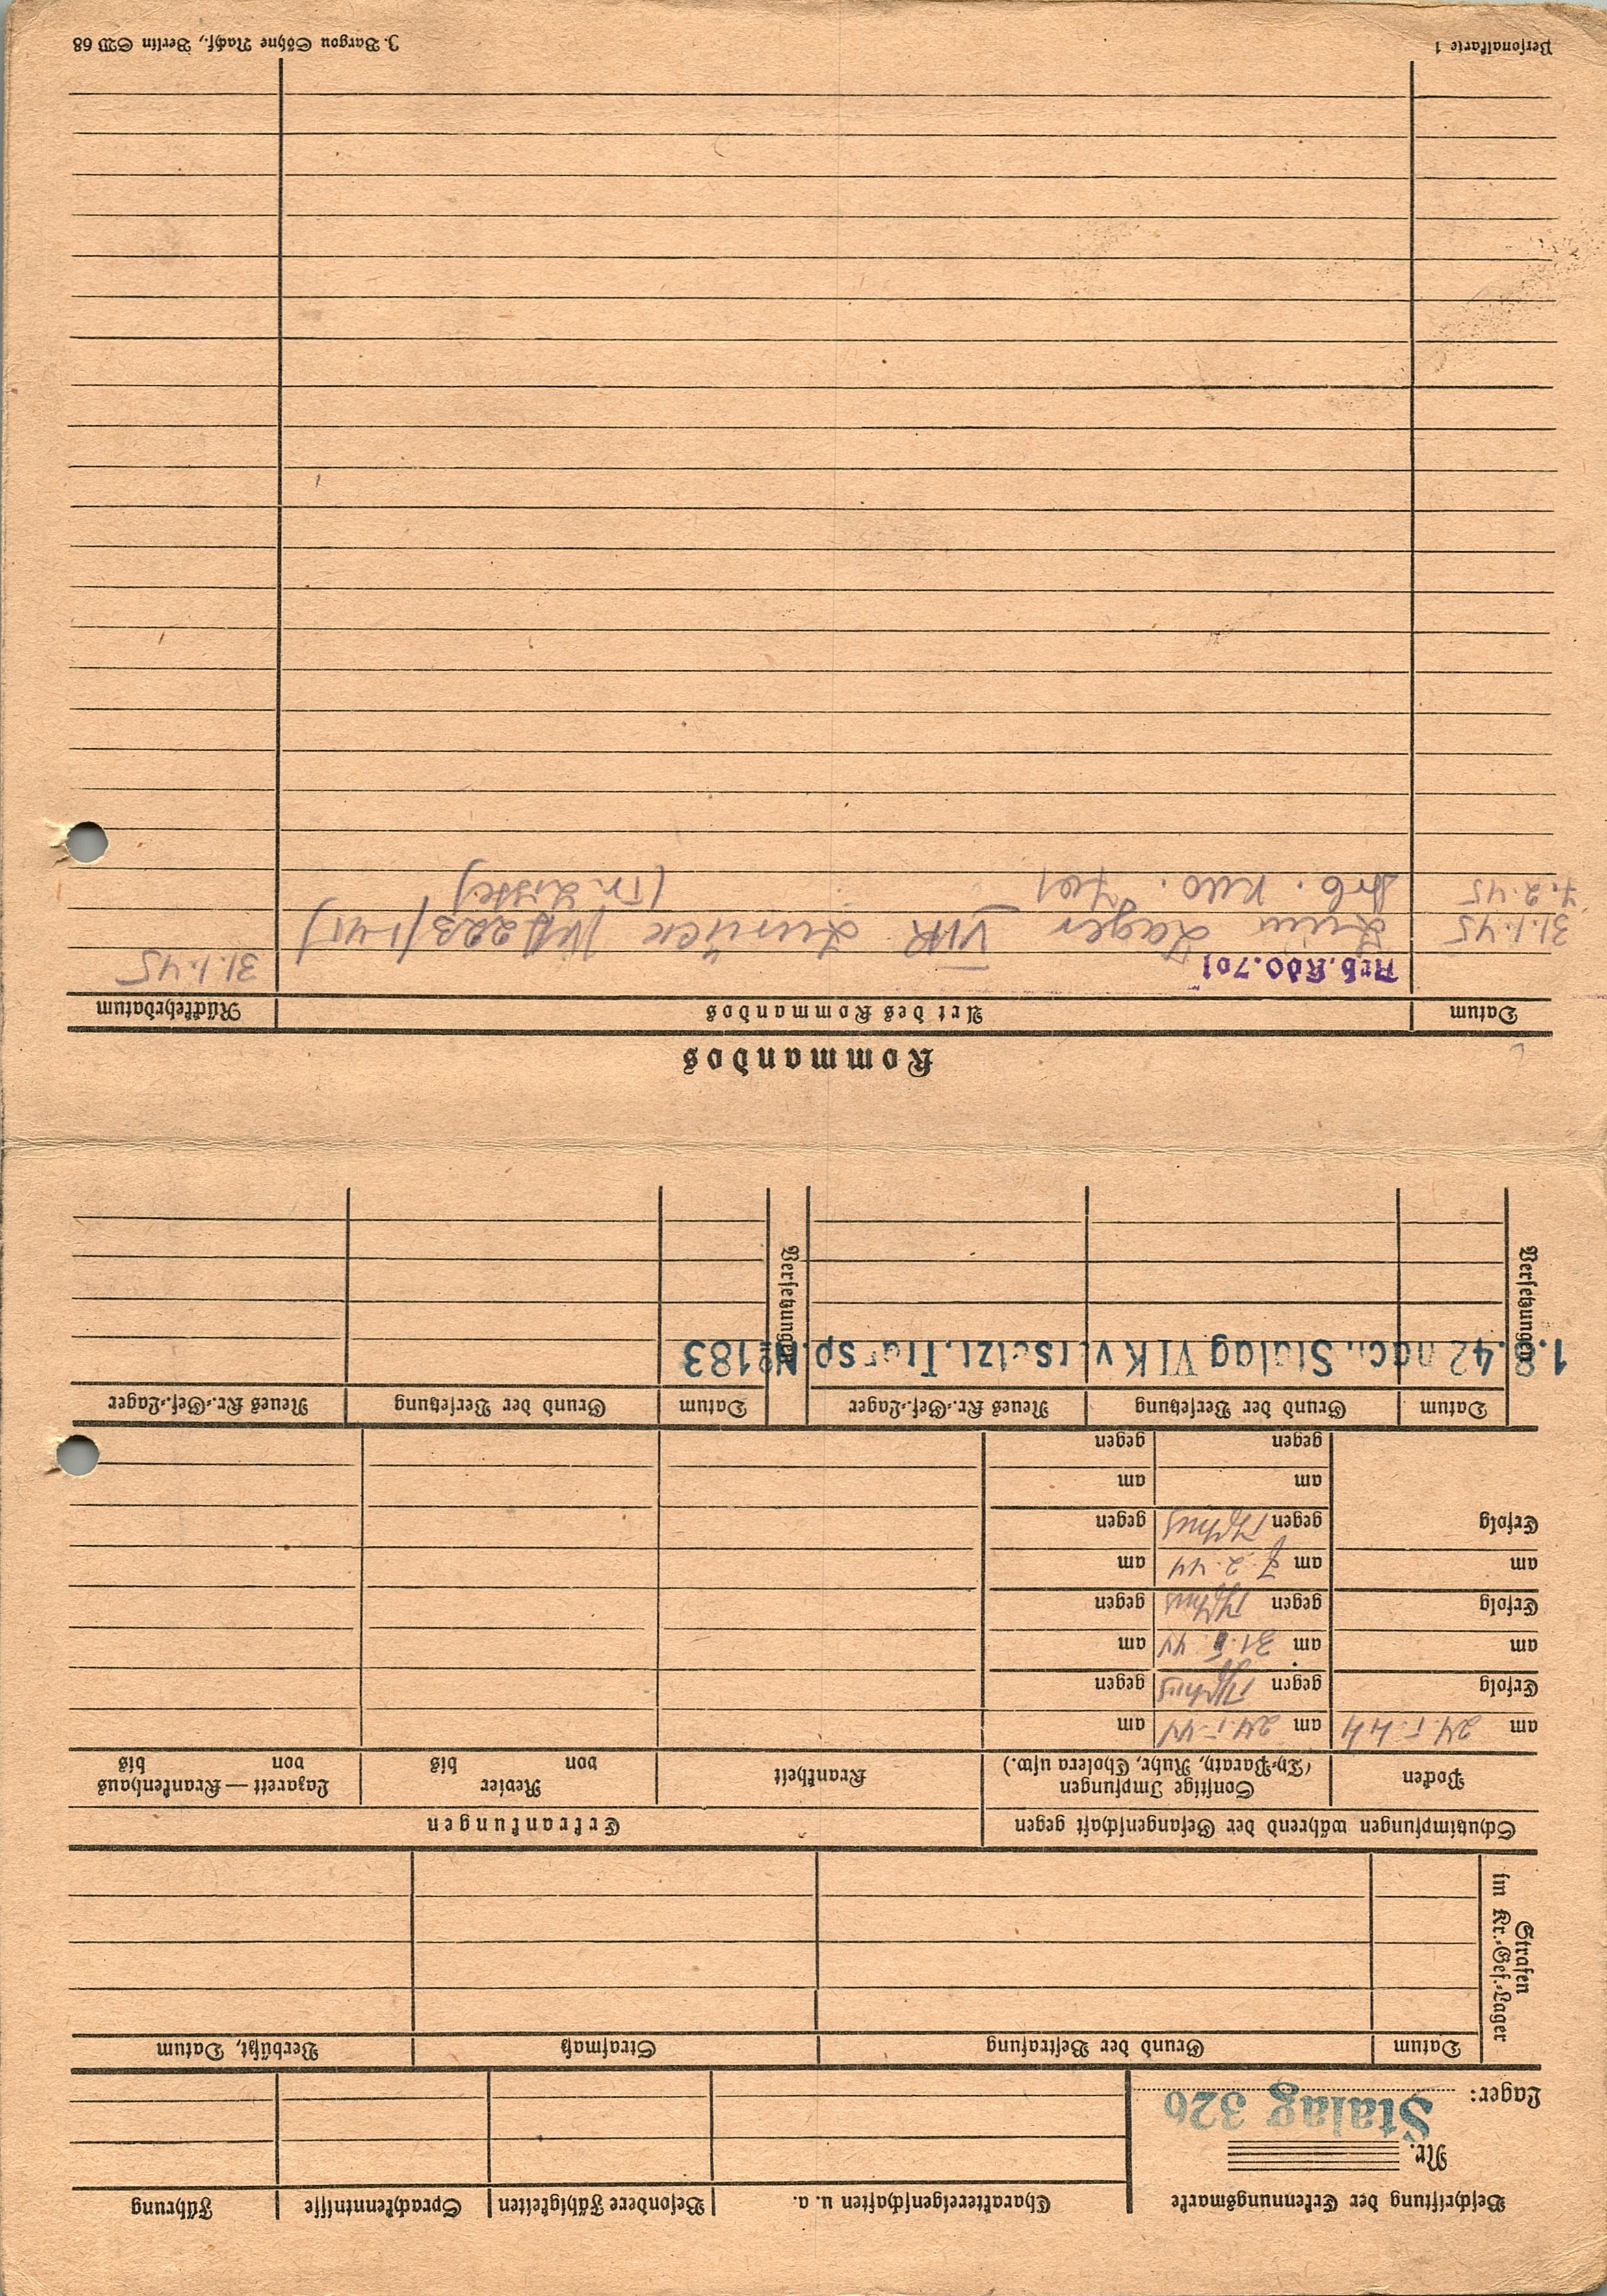 Beschriftung der Erkennungsmarke
Nr.
Lager: Stalag 326
Charaktereigenschaften u. a.
Besondere Fähigkeiten
Sprachkenntnisse
Führung
Strafen
im Kr.-Gef.-Lager
Datum
Grund der Bestrafung
Strafmaß
Verbüßt, Datum
Schutzimpfungen während der Gefangenschaft gegen
Erkrankungen
Pocken
Sonstige Impfungen
(Ty-Paraty, Ruhr, Cholera usw.)
Krankheit
Revier
von bis
Lazarett — Krankenhaus
von bis
am 24.1.44 am 24.1.44 am
Erfolg gegen Typhus gegen
am am 31.1.44 am
Erfolg gegen Typhus gegen
am am 7.2.44 am
Erfolg gegen Typhus gegen
am am
gegen gegen
Versetzungen
Datum
Grund der Versetzung
Neues Kr.-Gef.-Lager
Versetzungen
Datum
Grund der Versetzung
Neues Kr.-Gef.-Lager
1.8.42 nach Stalag VI K versetzt. Transp. № 183
Kommandos
Datum
Art des Kommandos
Rückkehrdatum
Arb. Kdo. 701 31.1.45
31.1.45 Zum Lager VI K zurück
7.2.45 Arb. Kdo. 701
Personalkarte 1
J. Bargou Söhne Nachf., Berlin SW 68